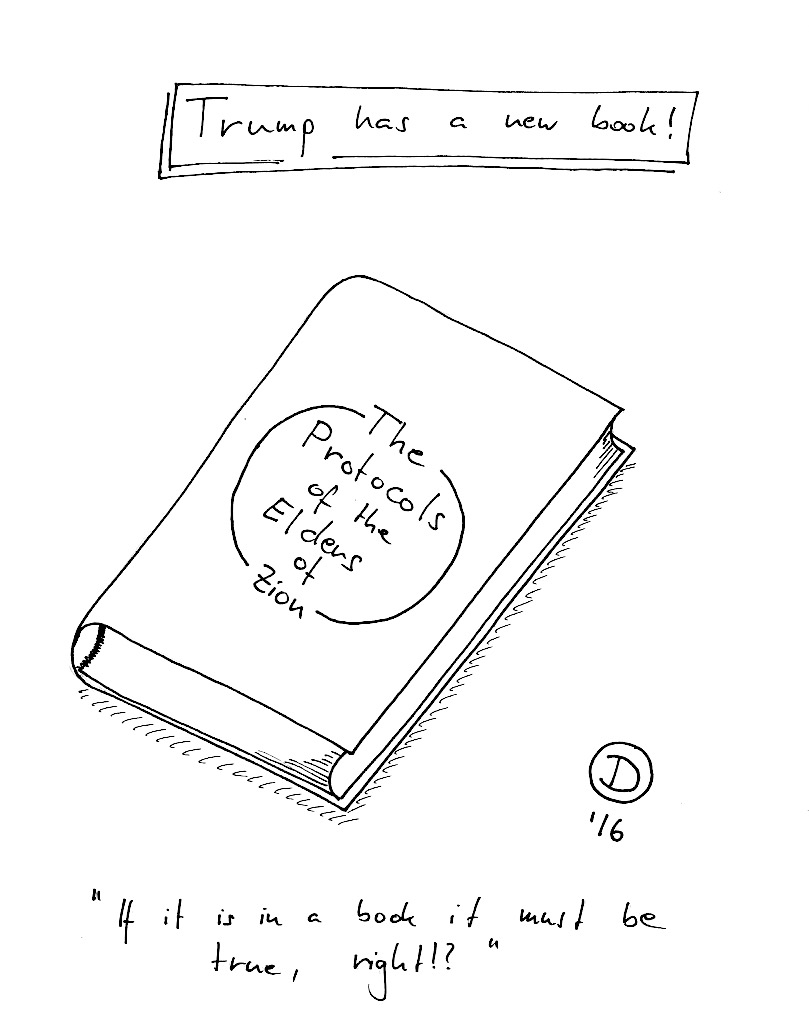 Trump has a new book!
The
Protocols
of the
Elders
of
Zion
D
'16
"If it is in a book it must be
true, right!?"